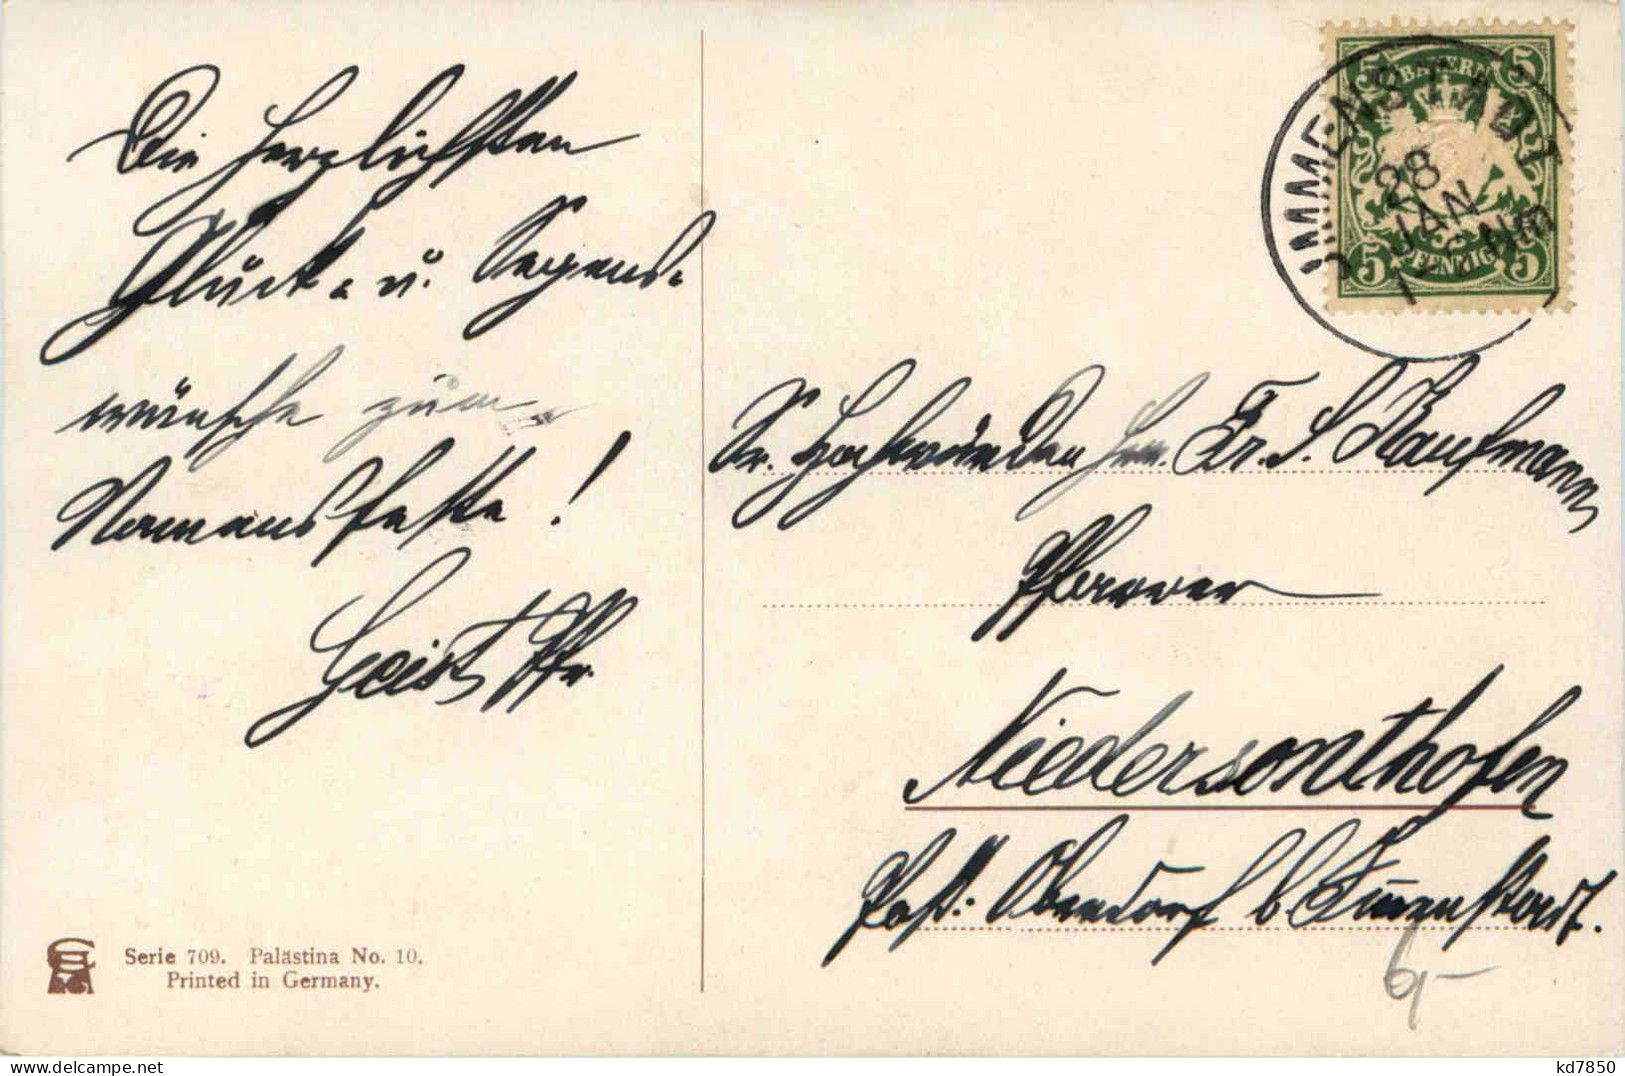 Die herzlichsten
Glück- u. Segens-
wünsche zum
Namensfeste!
Geist Pfr.
Serie 709. Palästina No. 10.
Printed in Germany.
BAYERN
5 5
5 PFENNIG 5
IMMENSTADT
28
JAN
Sr. Hochwürden Hrn. Fr. S. Kaufmann
Pfarrer
Niedersonthofen
Post: Oberdorf b. Immenstadt.
6,-
kd7850